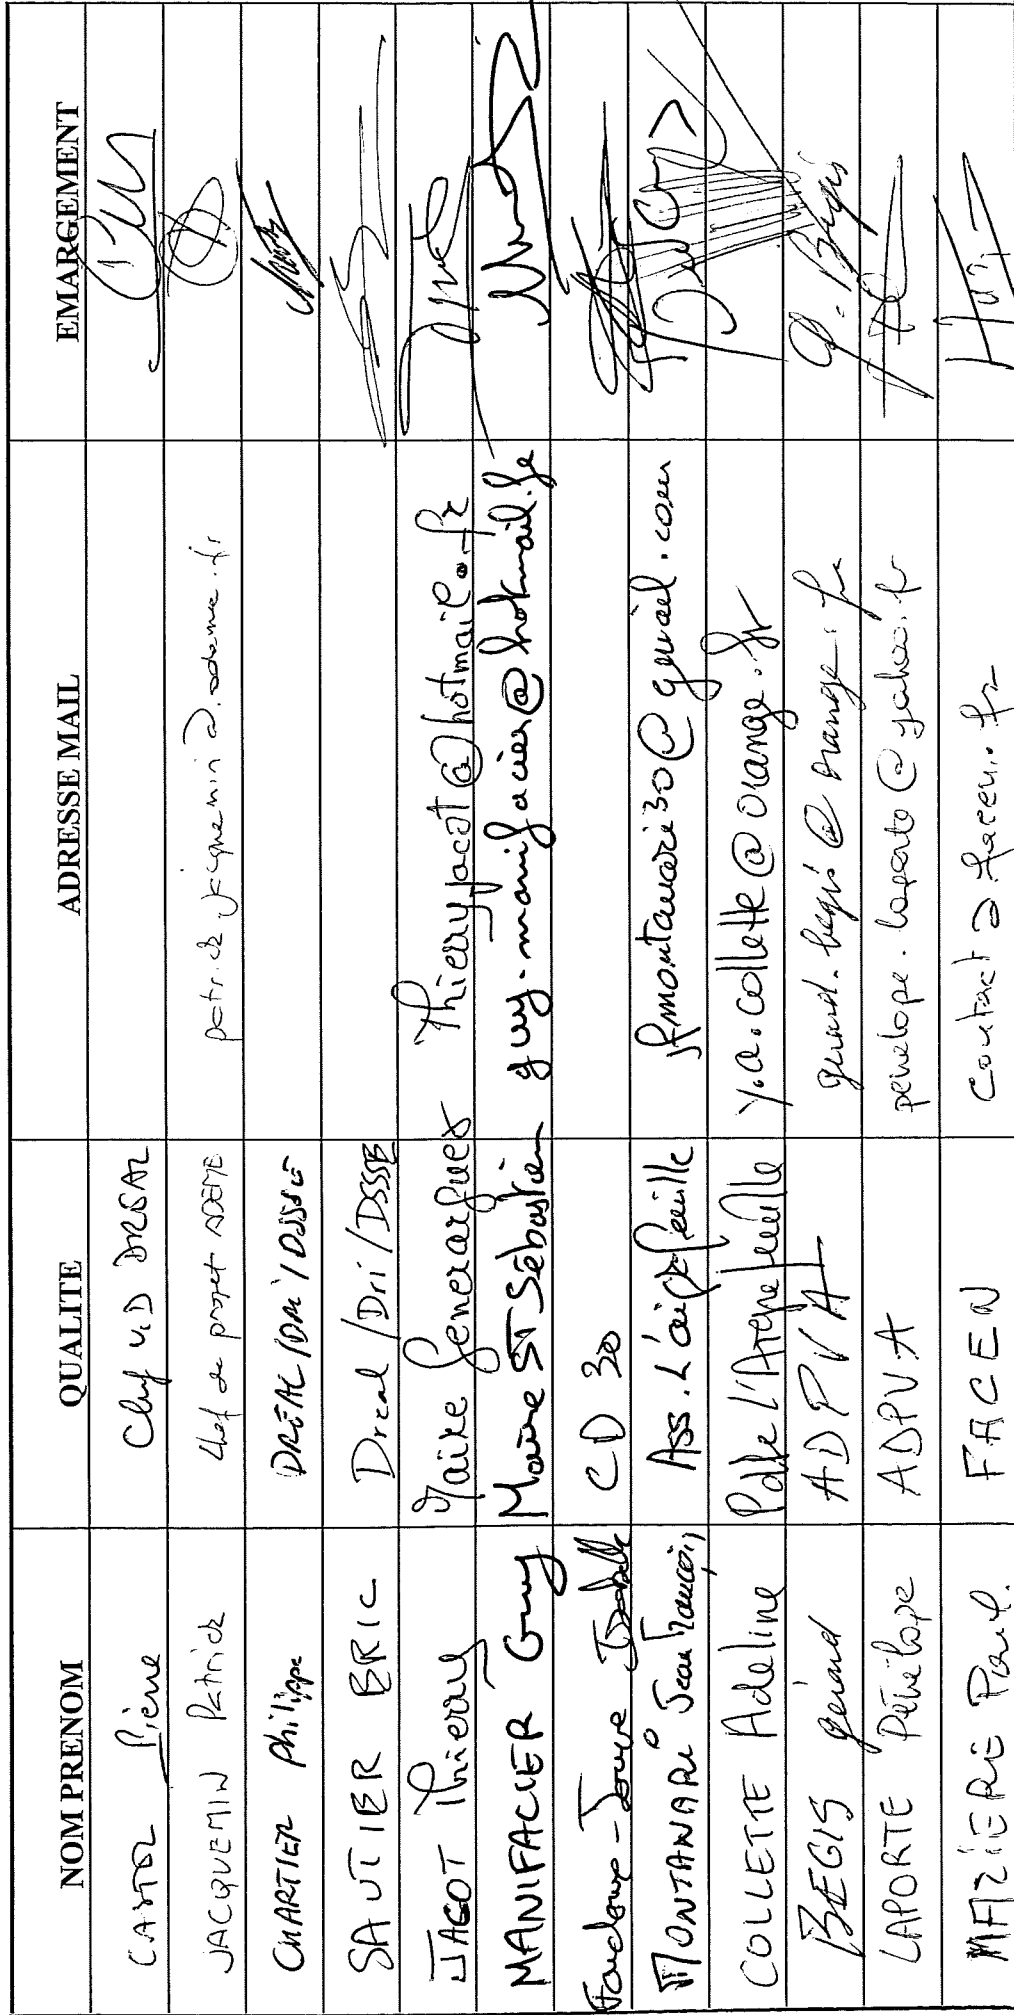 NOM PRENOM QUALITE ADRESSE MAIL EMARGEMENT
CASTOR Pierre Chef U.D DREAL
JACQUEMIN Patrick Chef de projet ADEME patrick.jacquemin@ademe.fr
CHARTIER Philippe DREAL/DRI/DSSE
SAUTIER ERIC Dreal/Dri/DSSE
JAGOT Thierry Maire Generargues Thierryjacot@hotmail.fr
MANIFACIER Guy Maire ST Sébastien guy-manifacier@hotmail.fr
Isabelle CD 30
MONTANARI Jean François Ass. L'aiguefeuille jfmontanari30@gmail.com
COLLETTE Adeline Pdte L'Aiguefeuille y.a.collette@orange.fr
BEGIS gérard ADPVA gerard.begis@orange.fr G. Begis
LAPORTE Pénélope ADPVA penelope.laporte@yahoo.fr
MAZIERE Paul. FACEN contact@facen.fr